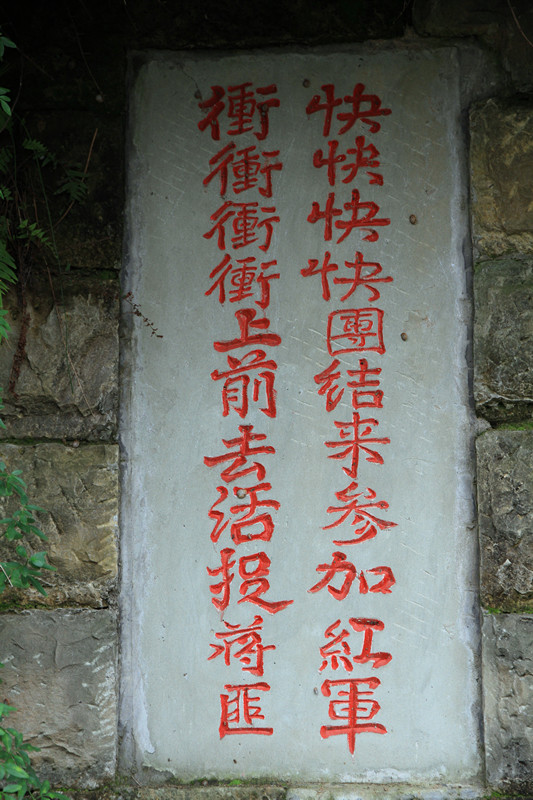 快快快快團结来参加红軍
衝衝衝衝上前去活捉蒋匪